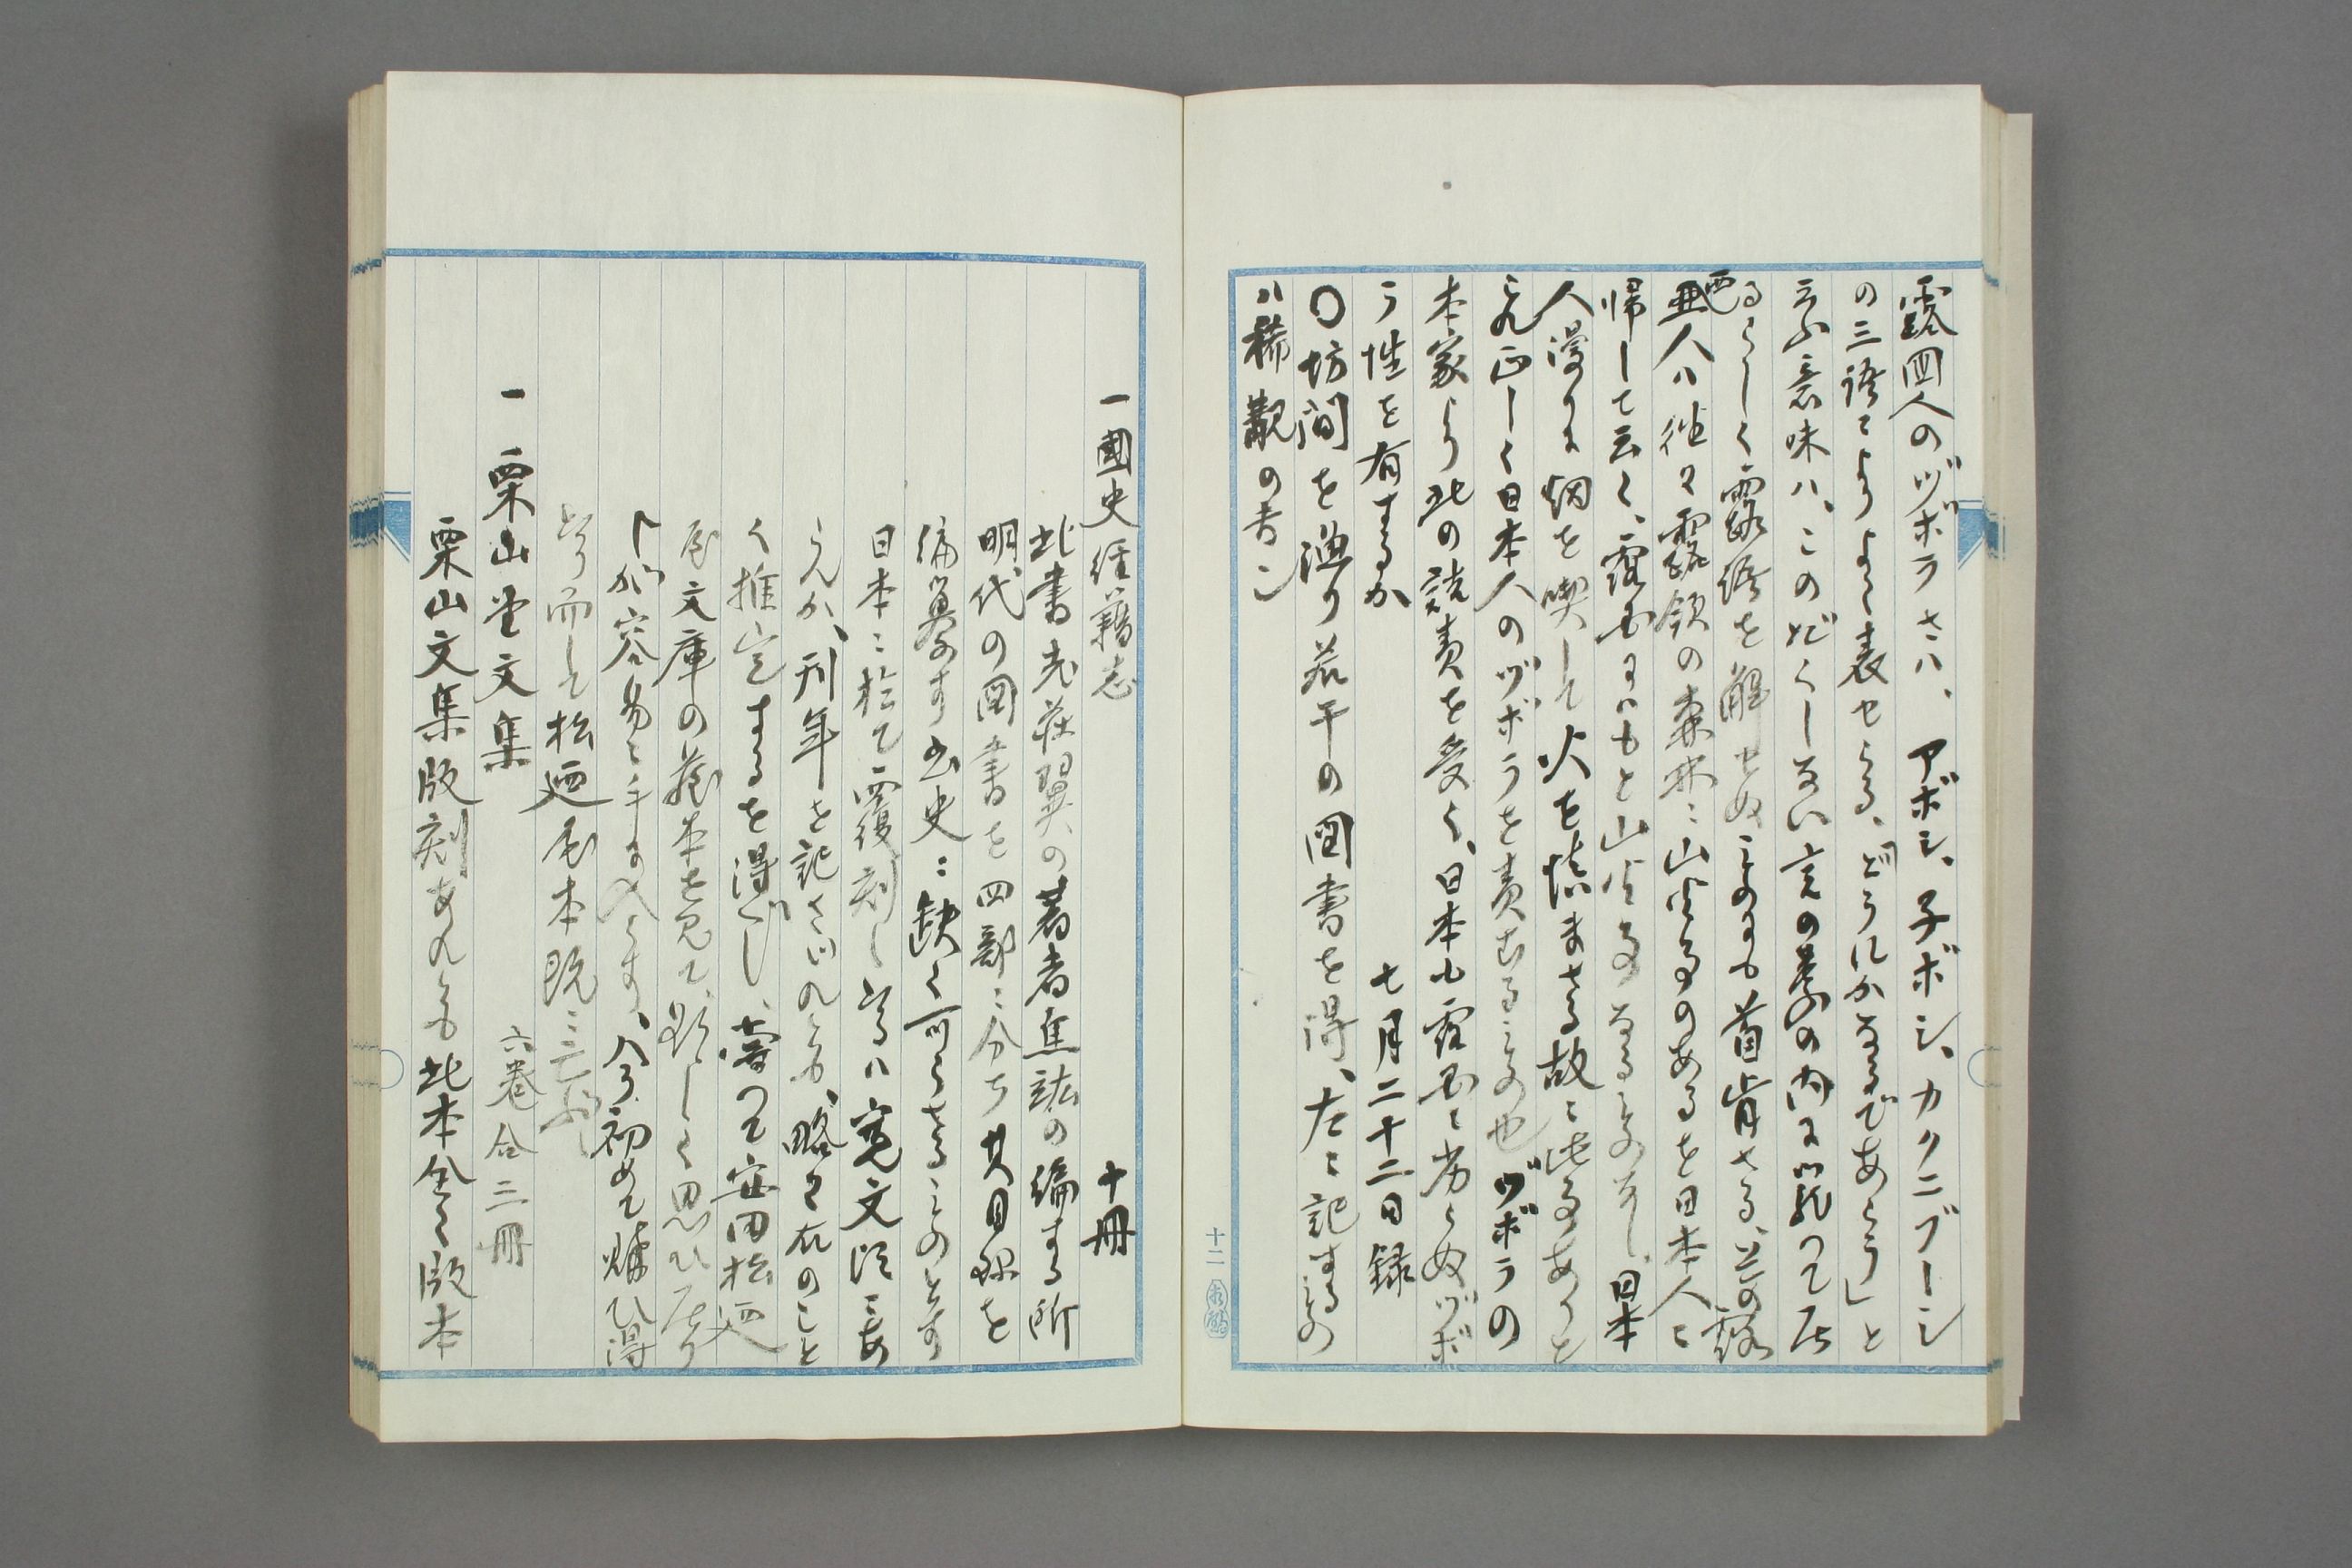 露国人のヅボラさハ、アボシ、子ボシ、カクニブーシ
の三語によりよく表せらる、「どうにかなるであらう」と
云ふ意味ハ、このどくしない言の葉の内に籠つて居
るらしく露語を解せぬものにも首肯さる、其の露
西亜人ハ往々露領の森林に山火事のあるを日本人に
帰して云く、露国にハもと山火事なるものなし、日本
人漫りに烟を喫して火を慎まざる故に此事ありと
宛しく日本人のヅボラを責むるもの也ヅボラの
本家より此の詰責を受く、日本も露国に劣らぬヅボ
ラ性を有するか
七月二十二日録
〇坊間を漁り若干の図書を得、左に記するもの
ハ稀覯の書ン
十二
一國史経籍志
十冊
此書老荘翼の著者焦竑の編する所
明代の図書を四部に分ち其目録を
編纂す書史に缺く可らざるものとす
日本に於て覆刻しあるハ寛文頃にあ
らんか、刊年を記さゞれとも、略々右のこと
く推定するを得べし、嘗つて安田松廼
屋文庫の蔵本を見て、頗しく思ひ居り
しが容易に手に入らす、今初めて購ひ得
たり而して松廼屋本既に亡ふ
一栗山堂文集
六巻合三冊
栗山文集版刻あれとも此本全く版本